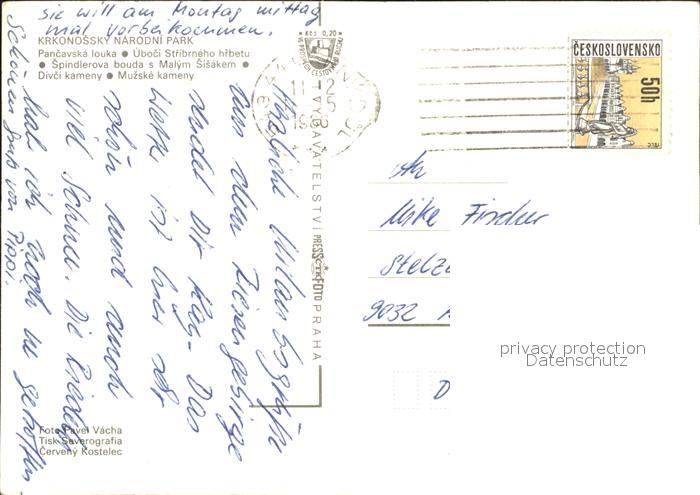 sie will am Montag mittag
mal vorbeikommen.
KRKONOŠSKÝ NÁRODNÍ PARK
Pančavská louka ● Úbočí Stříbrného hřbetu
● Špindlerova bouda s Malým Šišákem ●
Dívčí kameny ● Mužské kameny
Herzliche Urlaubsgrüße
aus dem Riesengebirge
sendet Dir Kay. Das
Wetter ist hier sehr
schön und noch
viel Schnee. Die
hab ich noch
Schönen Gruß von Pippi.
Foto Pavel Vácha
Tisk Severografia
Červený Kostelec
VYDAVATELSTVÍ PRESSFOTO PRAHA
Kčs 0,20
ČESKOSLOVENSKO
50h
TELČ
An
Mike Finder
Stelz
9032
D
privacy protection
Datenschutz